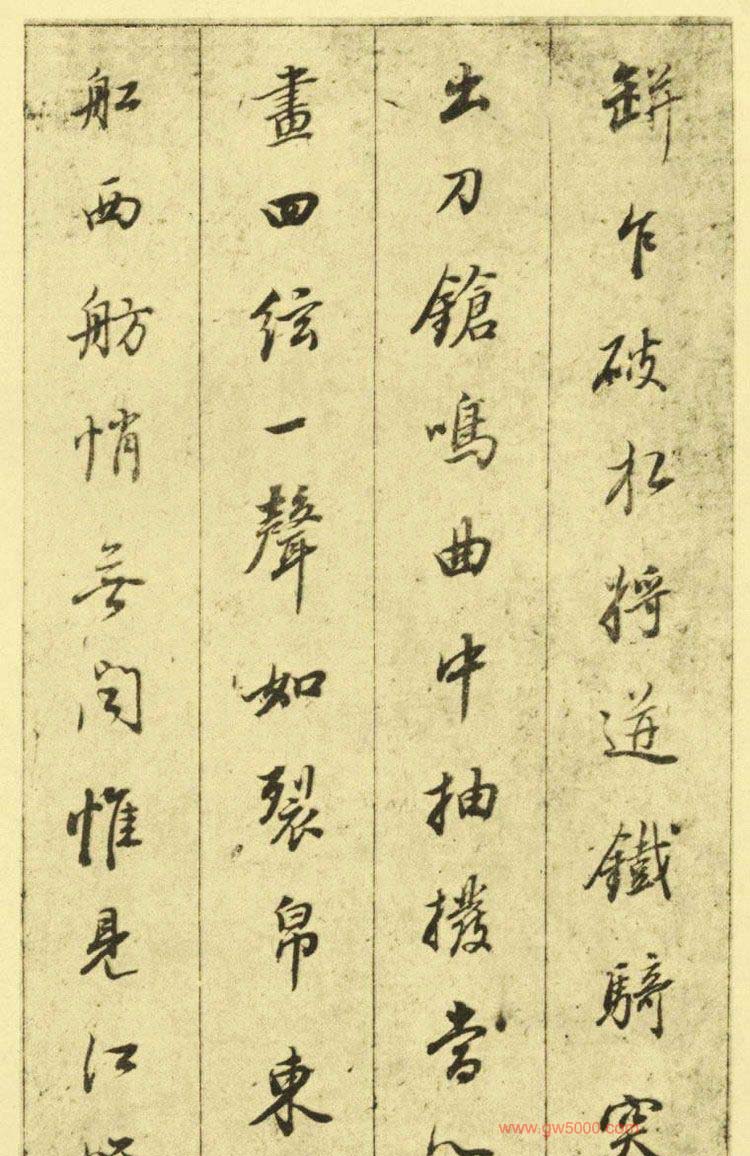 缾乍破水將迸鐵騎突
出刀鎗鳴曲中抽撥當
畫四絃一聲如裂帛東
舡西舫悄無聞惟見江
www.gw5000.com